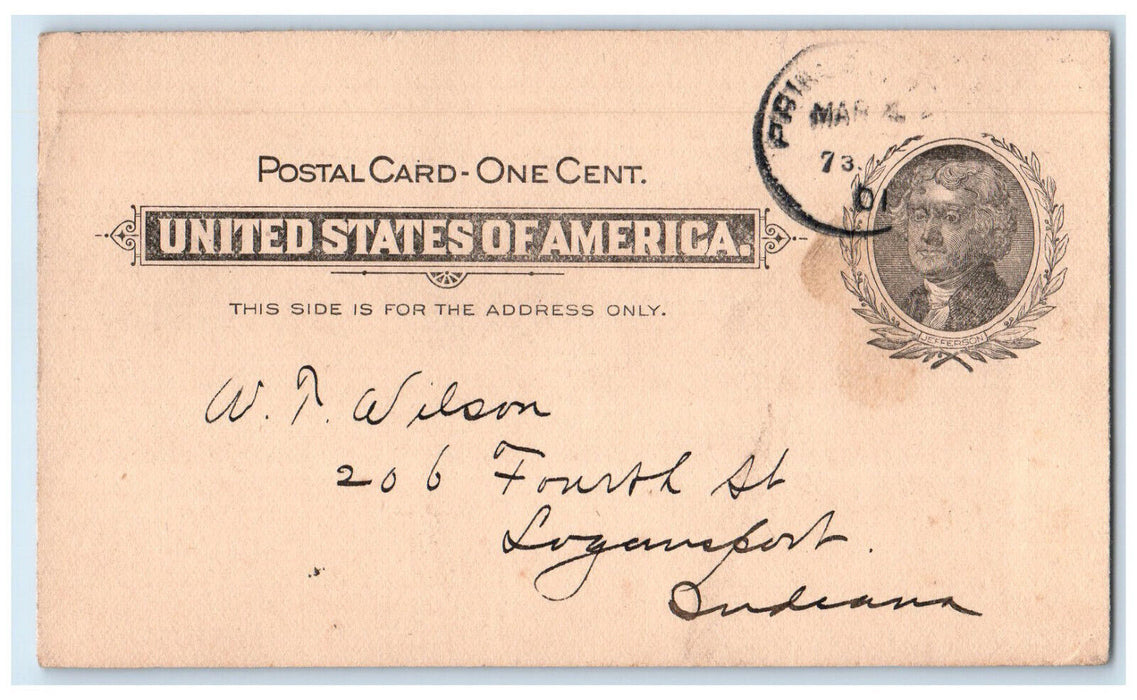 POSTAL CARD - ONE CENT.
UNITED STATES OF AMERICA.
THIS SIDE IS FOR THE ADDRESS ONLY.
MAR
73
01
JEFFERSON
W. T. Wilson
206 Fourth St
Logansport.
Indiana